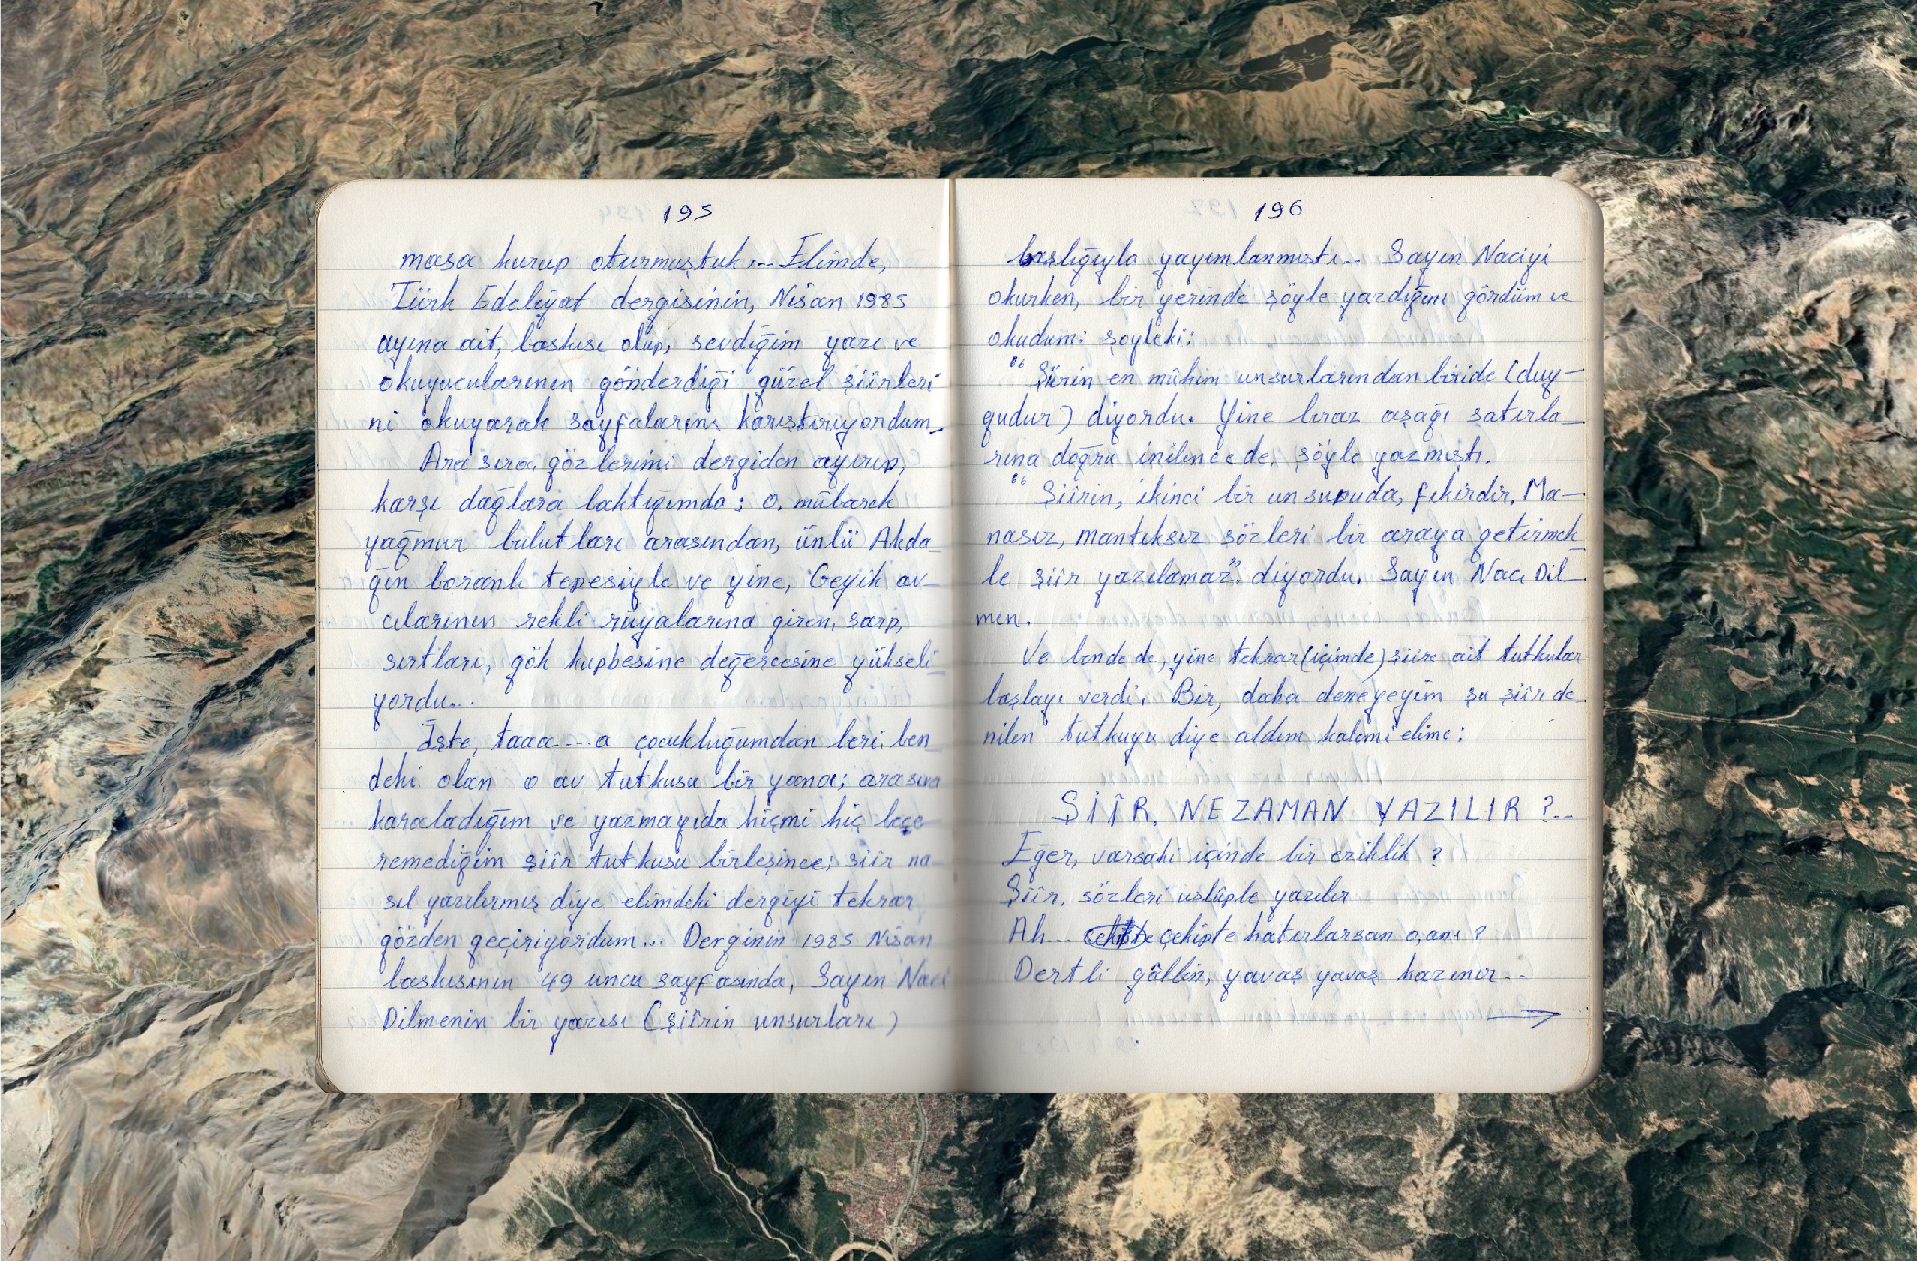 195
masa kurup oturmuştuk... Elimde,
Türk Edebiyat dergisinin, Nisan 1985
ayına ait, baskısı olup, sevdiğim yazı ve
okuyucularının gönderdiği güzel şiirleri
ni okuyarak sayfalarını karıştırıyordum.
Ara sıra, gözlerimi dergiden ayırıp,
karşı dağlara baktığımda; o, mübarek
yağmur bulutları arasından, ünlü Akda-
ğın boranlı tepesiyle ve yine, Geyik av-
cılarının rekli rüyalarına giren, sarp,
sırtları, gök kupbesine değercesine yükseli
yordu...
İşte, taaa---a çocukluğumdan beri, ben
deki olan o av tutkusu bir yana; arasıra
karaladığım ve yazmayıda hiçmi hiç bece
remediğim şiir tutkusu birleşince; şiir na-
sıl yazılırmış diye elimdeki dergiyi tekrar
gözden geçiriyordum... Derginin 1985 Nisan
baskısının 49 uncu sayfasında, Sayın Naci
Dilmenin bir yazısı (şiirin unsurları)
196
başlığıyla yayımlanmıştı... Sayın Naciyi
okurken, bir yerinde şöyle yazdığını gördüm ve
okudum; şöyleki:
"Şiirin en mühim unsurlarından biride (duy-
gudur) diyordu. Yine biraz aşağı satırla-
rına doğru inilencede, şöyle yazmıştı.
"Şiirin, ikinci bir unsuruda, fikirdir. Ma-
nasız, mantıksız sözleri bir araya getirmek
le şiir yazılamaz". diyordu. Sayın Naci Dil-
men.
Ve bende de, yine tekrar (içimde) şiire ait tutkular
başlayı verdi. Bir, daha deneyeyim şu şiir de
nilen tutkuyu diye aldım kalemi elime;
ŞİİR, NE ZAMAN YAZILIR?..
Eğer, varsaki içinde bir eziklik?
Şiir, sözleri uslüple yazılır
Ah... çekipte hatırlarsan o, anı?
Dertli gâlbin, yavaş yavaş kazınır...